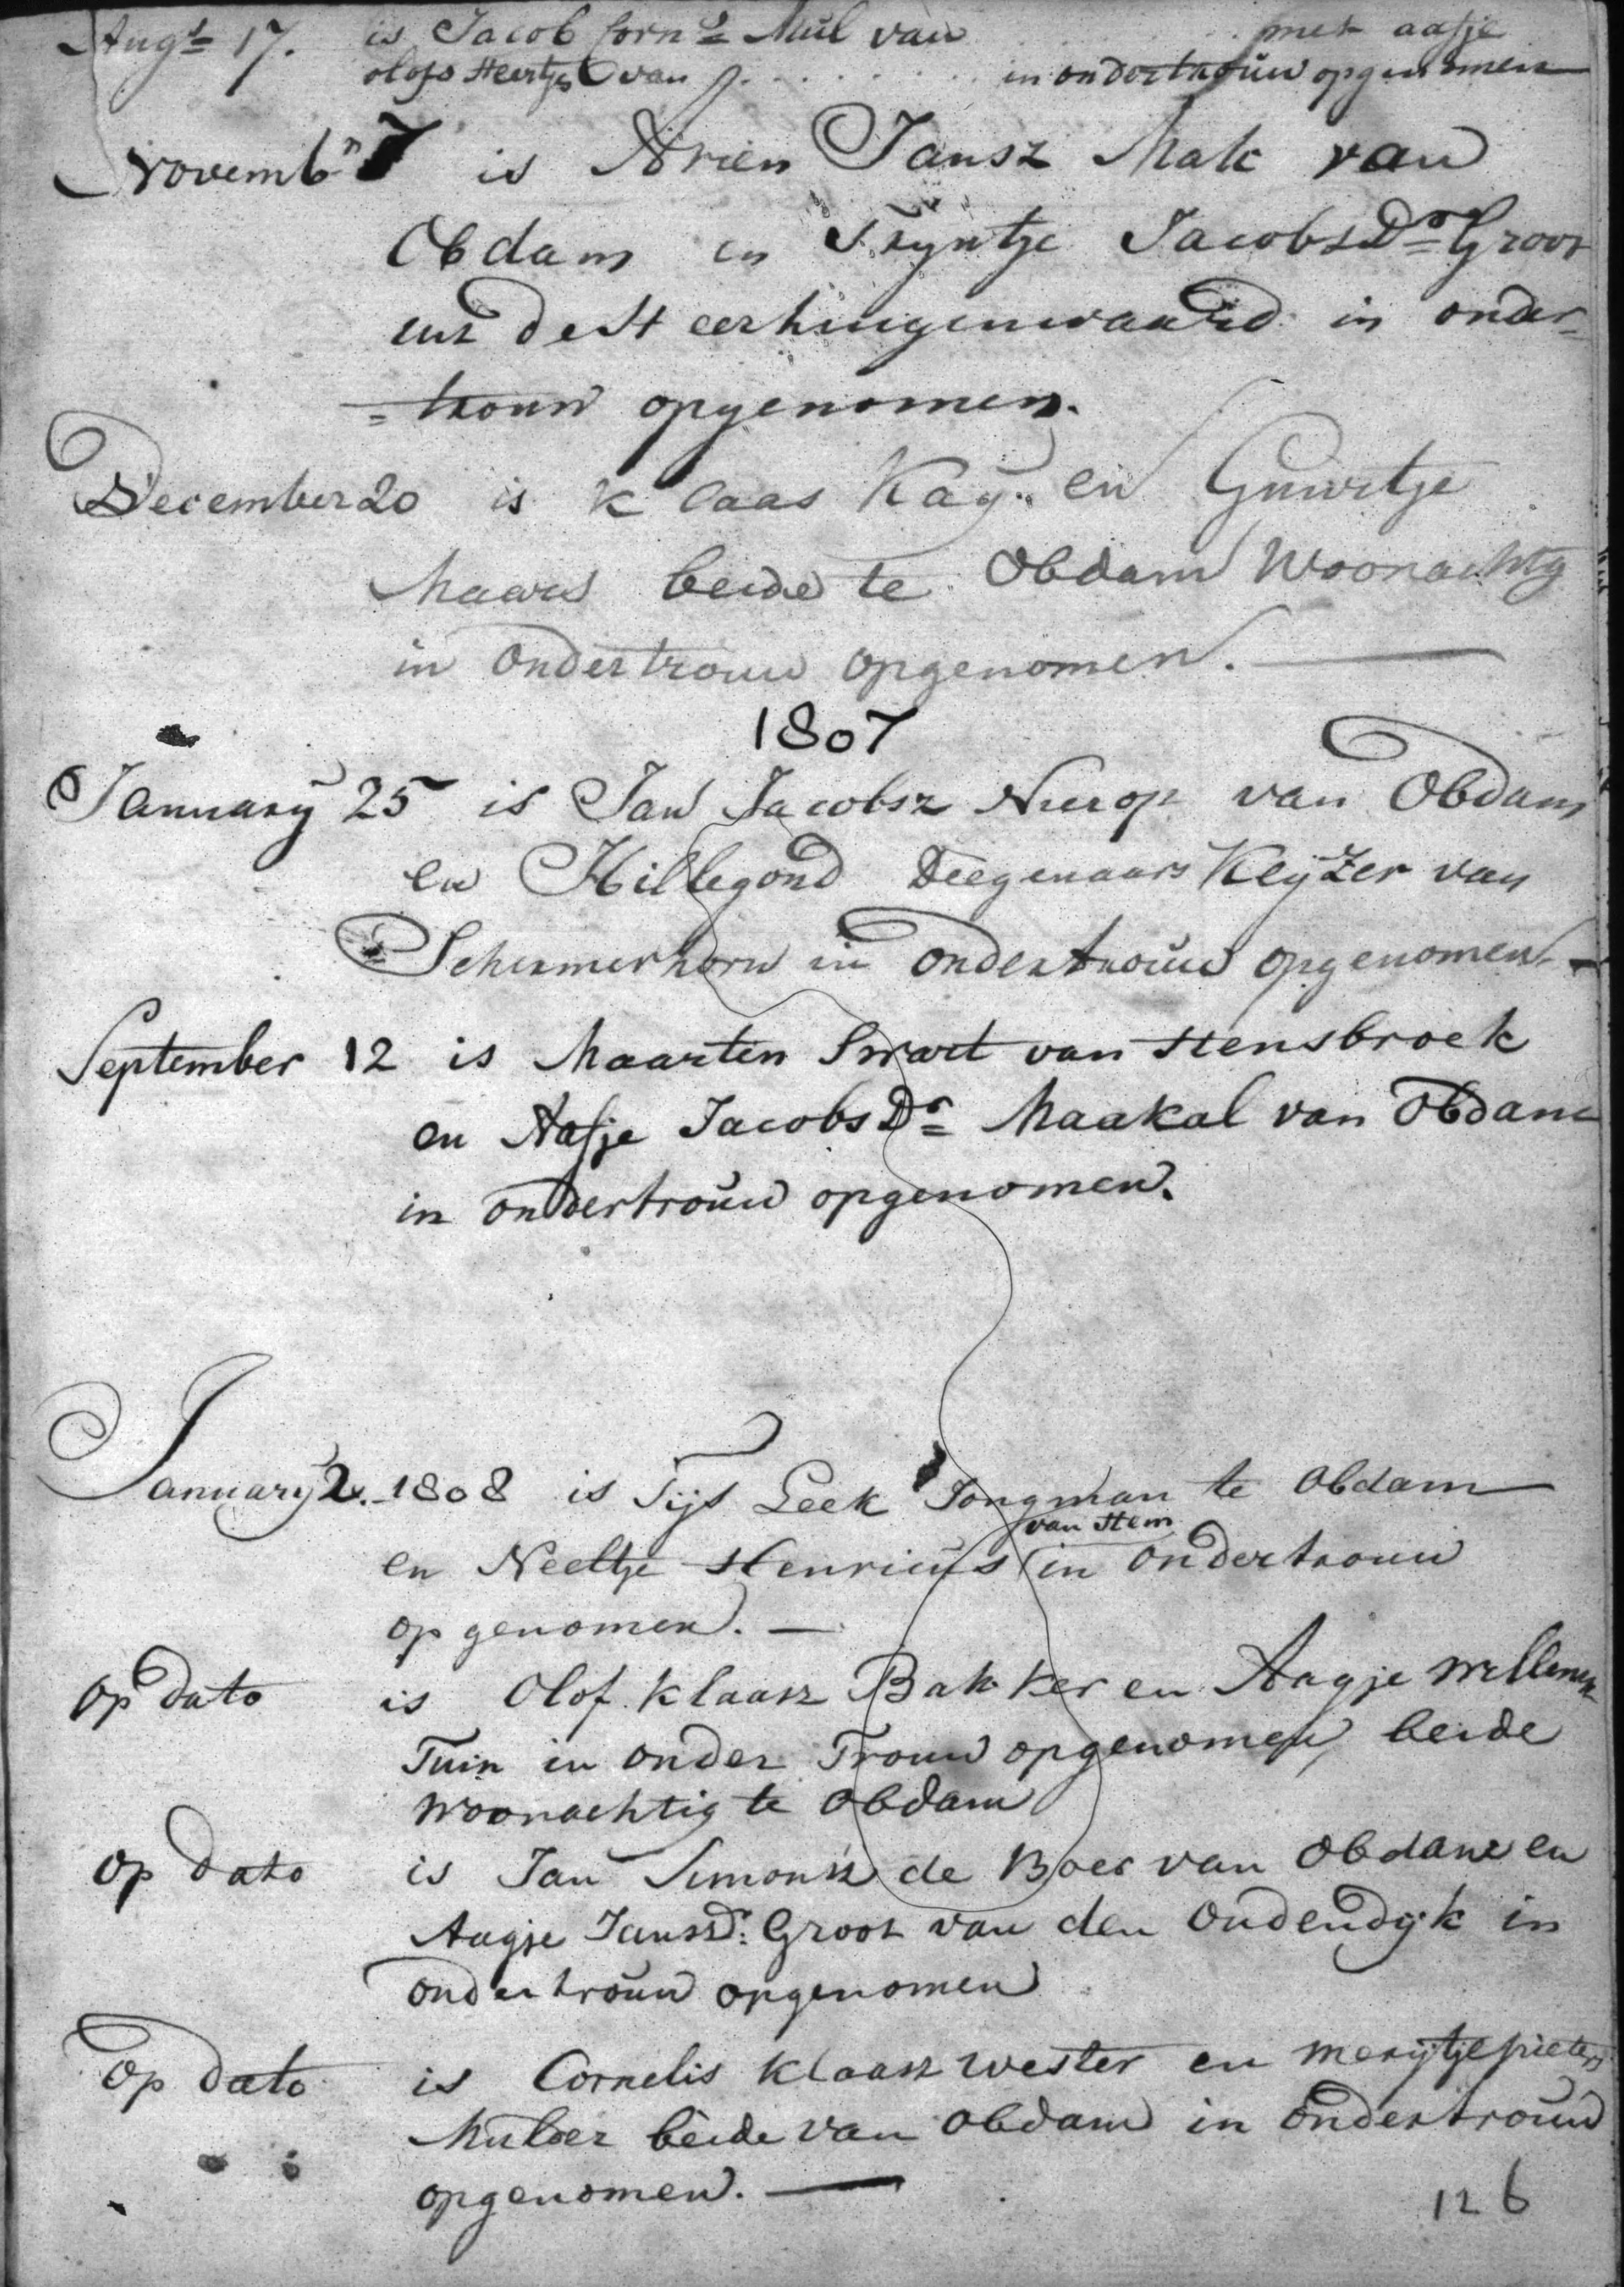 Augt 17. is Jacob Corns Mul van . . . . . . met aafje
olofs Heertjes van . . . . . . . . in ondertrouw opgenomen
Novembr 7 is Arien Jansz Mak van
Obdam en Trijntje Jacobs Dr Groot
uit de Heerhuigenwaard in onder=
=trouw opgenomen.
December 20 is Klaas Kaÿ en Guurtje
Maars beide te Obdam Woonachtig
in ondertrouw opgenomen.
1807
January 25 is Jan Jacobsz Nierop van Obdam
en Hillegond Deegenaars Keyzer van
Schermerhorn in ondertrouw opgenomen
September 12 is Maarten Swart van Hensbroek
en Aafje Jacobs Dr Maakal van Obdam
in ondertrouw opgenomen.
January 2. 1808 is Tijs Leek Jongman te Obdam
van Hem
en Neeltje Henricus in ondertrouw
opgenomen. —
op dato is Olof Klaasz Bakker en Aagje Willems
Tuin in onder Trouw opgenomen, beide
woonachtig te Obdam
op dato is Jan Simonsz de Boer van Obdam en
Aagje Jansdr: Groot van den Oudendijk in
ondertrouw opgenomen
op dato is Cornelis Klaasz Wester en Merijtje pieters
Mulder beide van Obdam in ondertrouw
opgenomen. —
126